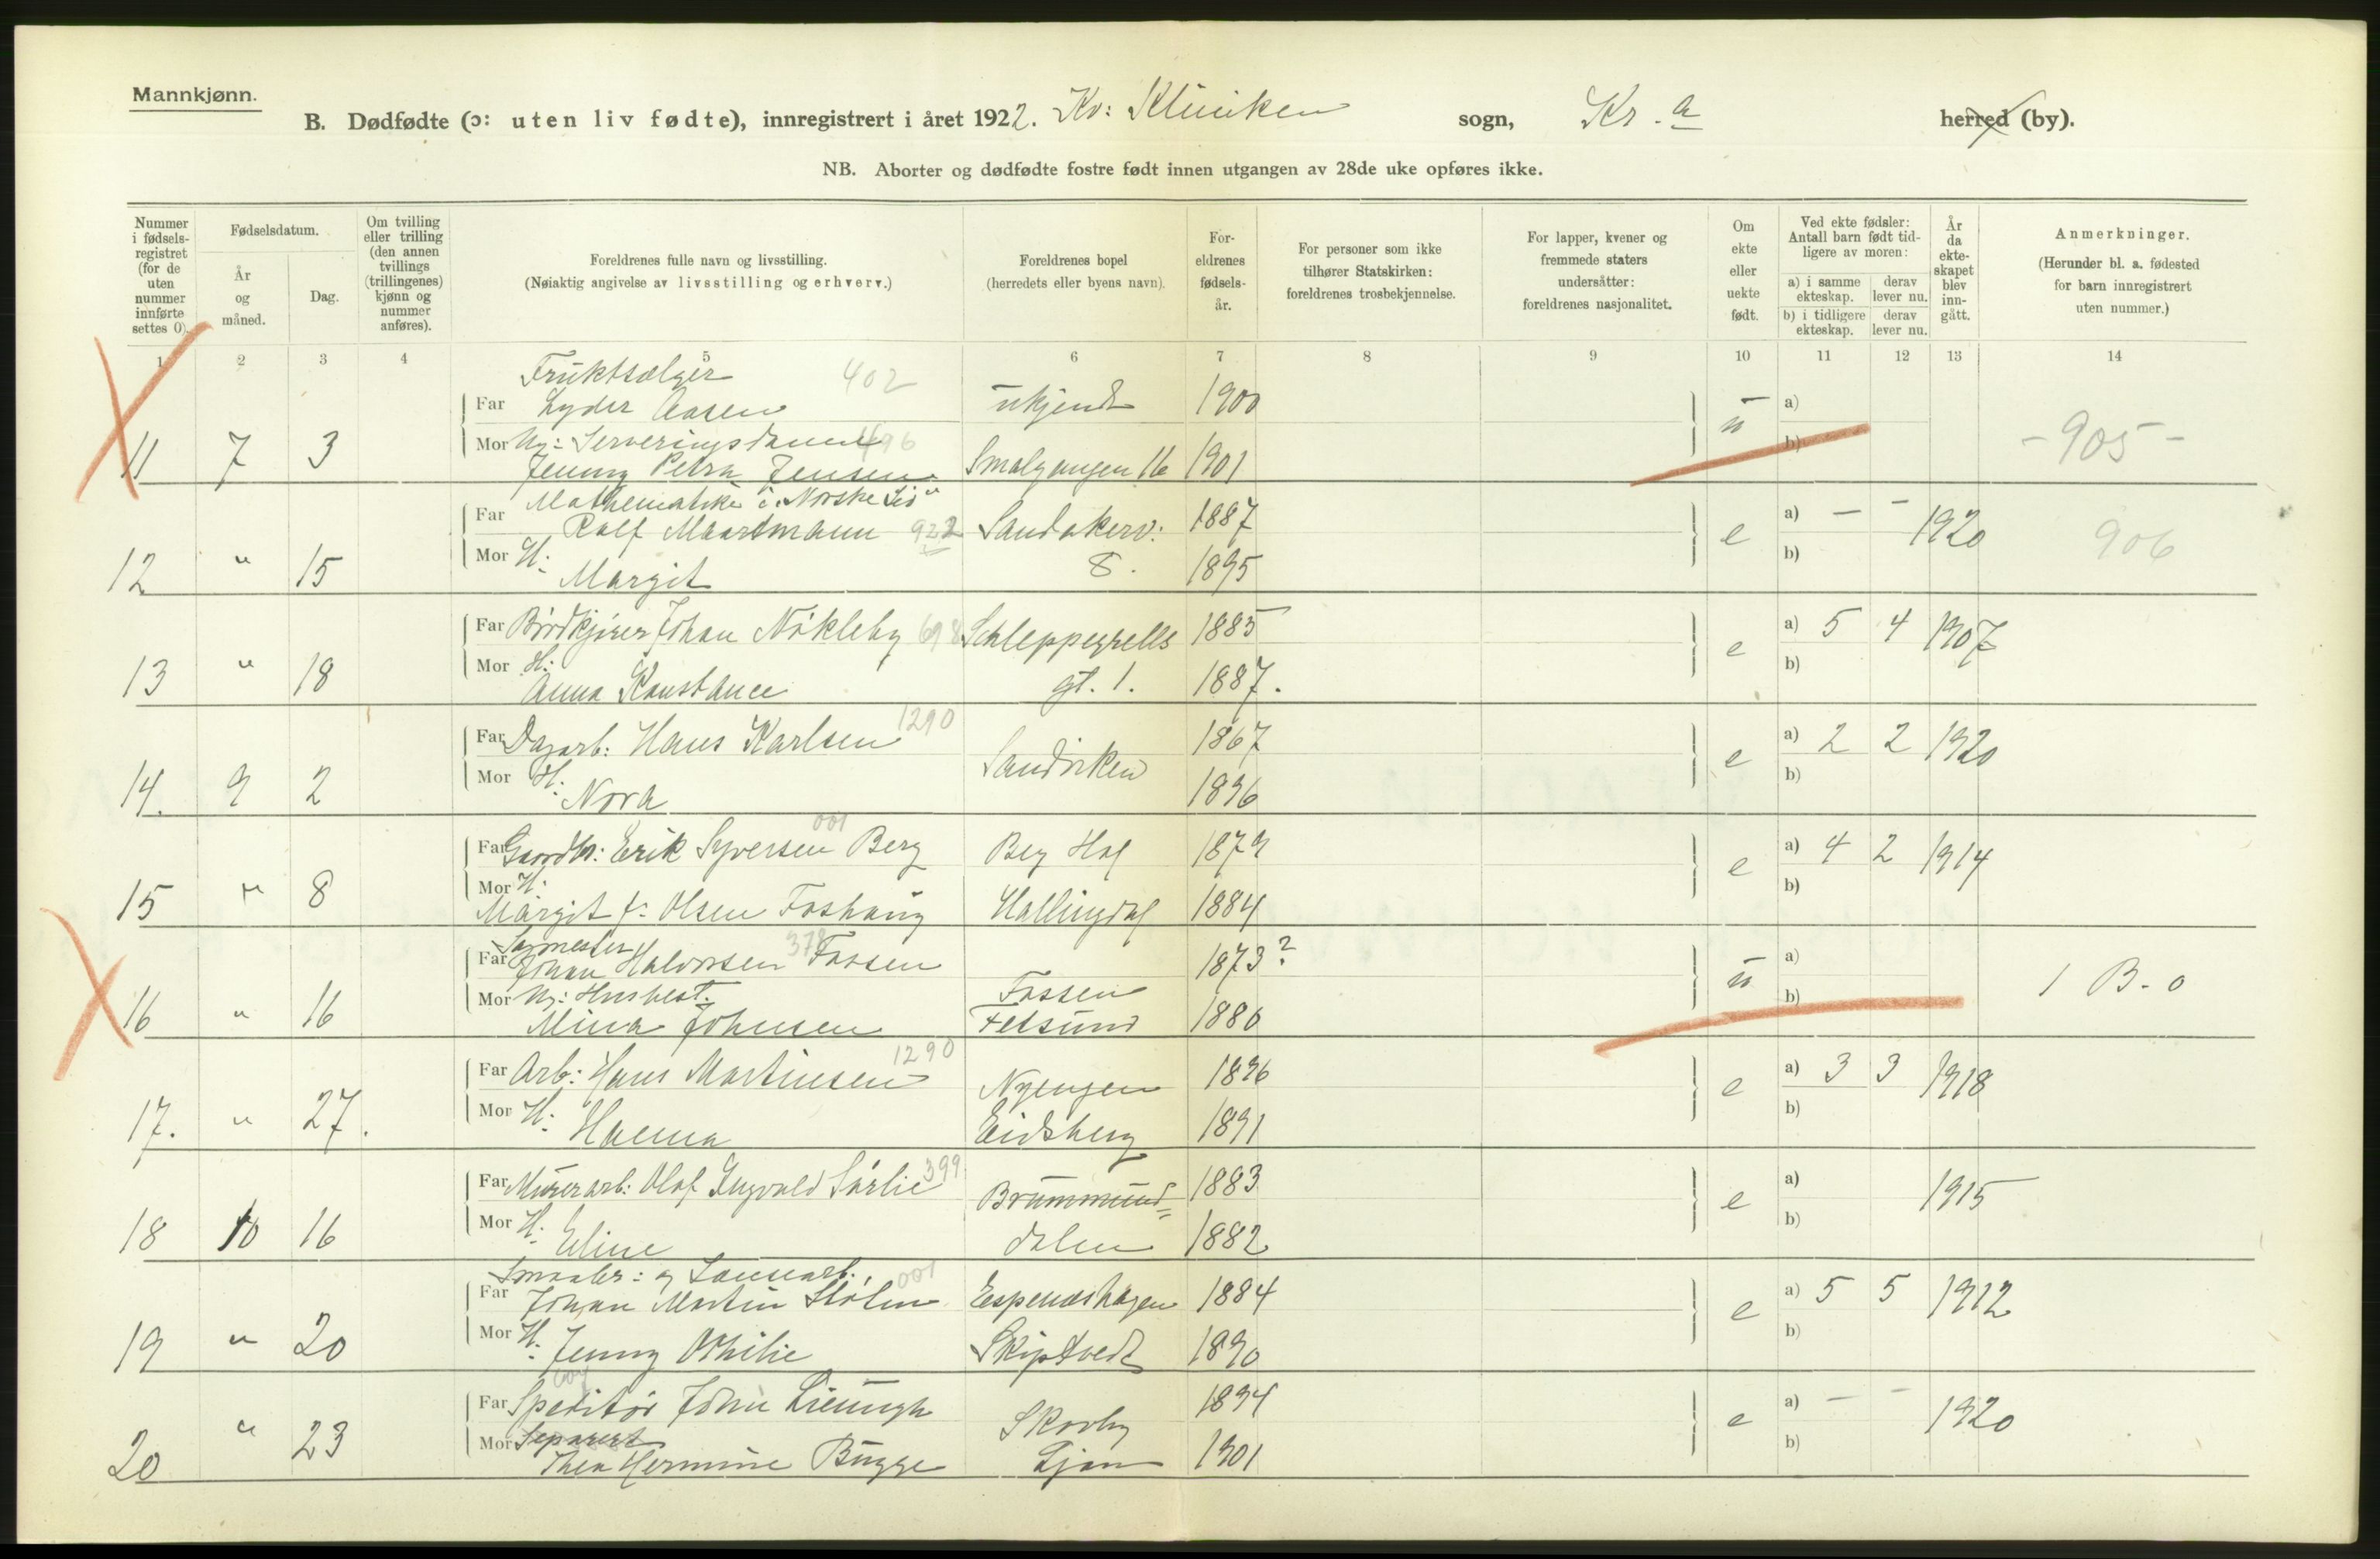 Mannkjønn.
B. Dødfødte (ɔ: uten liv fødte), innregistrert i året 1922. Kv: Kliniken sogn, Kr.a herred (by).
NB. Aborter og dødfødte fostre født innen utgangen av 28de uke opføres ikke.
Nummer i fødselsregistret (for de uten nummer innførte settes 0).
Fødselsdatum.
År og måned.
Dag.
Om tvilling eller trilling (den annen tvillings (trillingenes) kjønn og nummer anføres).
Foreldrenes fulle navn og livsstilling.
(Nøiaktig angivelse av livsstilling og erhverv.)
Foreldrenes bopel
(herredets eller byens navn).
Foreldrenes fødselsår.
For personer som ikke tilhører Statskirken: foreldrenes trosbekjennelse.
For lapper, kvener og fremmede staters undersåtter: foreldrenes nasjonalitet.
Om ekte eller uekte født.
Ved ekte fødsler: Antall barn født tidligere av moren:
a) i samme ekteskap. derav lever nu.
b) i tidligere ekteskap. derav lever nu.
År da ekteskapet blev inngått.
Anmerkninger.
(Herunder bl. a. fødested for barn innregistrert uten nummer.)
1 2 3 4 5 6 7 8 9 10 11 12 13 14
Fruktsælger 402
Far Lyder Aasen ukjendt 1900 u a)
11 7 3 Mor Ug: Serveringsdame 496 b) -905-
Jenny Petra Jensen Smalgangen 16 1901
Mathematike i "Norske Liv"
Far Rolf Maartmann 922 Sandakerv: 1887 e a) — — 1920 906
12 " 15 Mor H: Margit 8. 1895 b)
Far Brødkjører Johan Nøkleby 698 Schleppegrells 1885 e a) 5 4 1907
13 " 18 Mor H: Anna Konstance gt. 1. 1887. b)
Far Dagarb: Hans Karlsen 1290 Sandviken 1867 e a) 2 2 1920
14. 9 2 Mor H: Nora 1896 b)
001
Far Gaardbr: Erik Syversen Berg Berg Hol 1879 e a) 4 2 1914
15 " 8 Mor H: b)
Margit f: Olsen Foshaug Hallingdal 1884
Far Johan Halvorsen Fossen 378 1873? u a)
16 " 16 Mor Ug: Husbest. Fossen b) 1 B. 0
Mina Johnsen Fetsund 1886
Far Arb: Hans Martinsen 1290 Nyengen 1896 e a) 3 3 1918
17. " 27. Mor H: Hanna Eidsberg 1891 b)
Far Murerarb: Olaf Ingvald Sørlie 399 Brummund= 1883 e a) 1915
18 10 16 Mor H: Eline dalen 1882 b)
001
Far Johan Martin Espenæshagen 1884 e a) 5 5 1912
19 " 20 Mor H: Jenny Othilie Skiptvedt 1890 b)
Far Speditør John Skovby 1894 e a) — — 1920
20 " 23 Mor Separert b)
Thea Hermine Bugge Ljan 1901